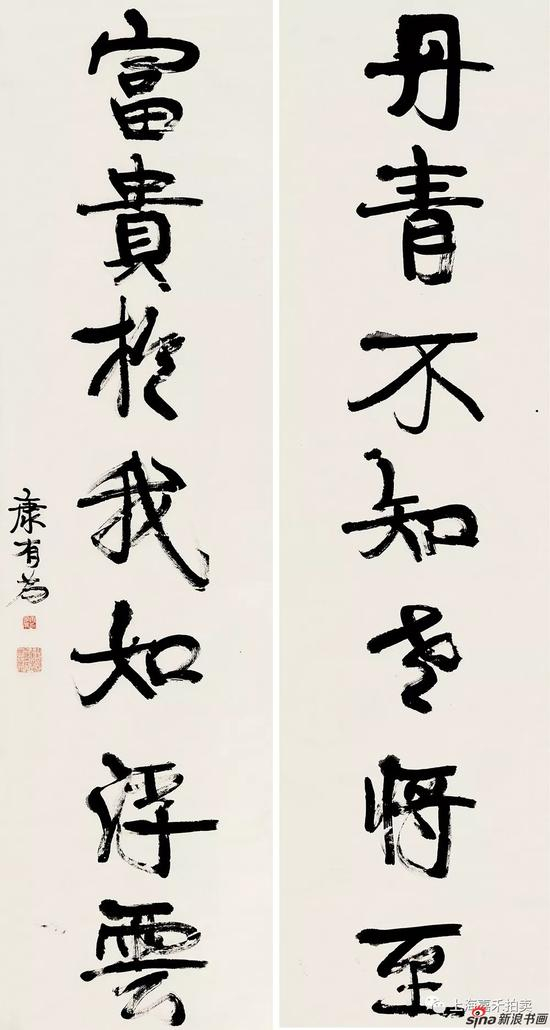 丹青不知老将至
富貴於我如浮雲
康有為
上海嘉禾拍卖
sina新浪书画